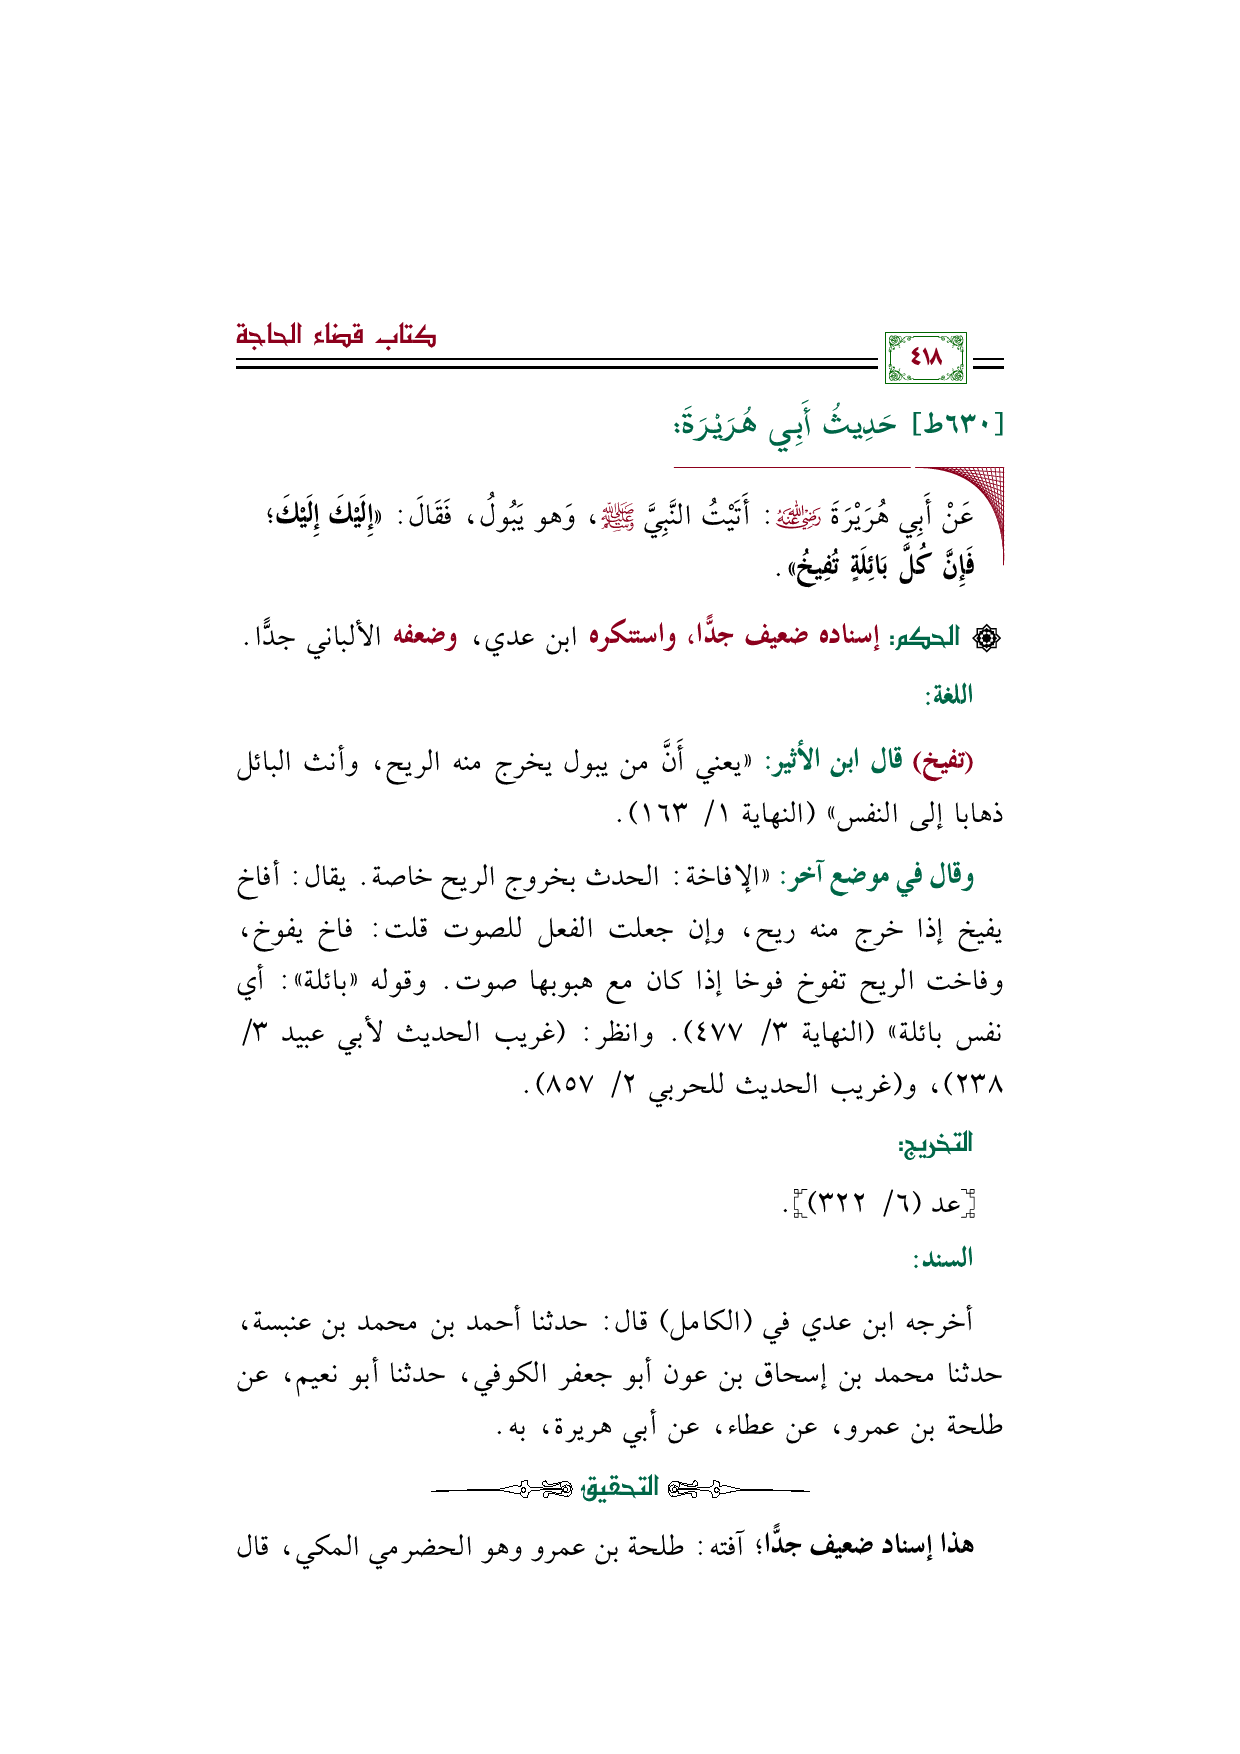 كتاب قضاء الحاجة
٤١٨
[٦٣٠ط] حَدِيثُ أَبِي هُرَيْرَةَ:
عَنْ أَبِي هُرَيْرَةَ رضي الله عنه: أَتَيْتُ النَّبِيَّ ﷺ، وَهو يَبُولُ، فَقَالَ: «إِلَيْكَ إِلَيْكَ؛
فَإِنَّ كُلَّ بَائِلَةٍ تُفِيخُ».
الحكم: إسناده ضعيف جدًّا، واستنكره ابن عدي، وضعفه الألباني جدًّا.
اللغة:
(تفيخ) قال ابن الأثير: «يعني أَنَّ من يبول يخرج منه الريح، وأنث البائل
ذهابا إلى النفس» (النهاية ١/ ١٦٣).
وقال في موضع آخر: «الإفاخة: الحدث بخروج الريح خاصة. يقال: أفاخ
يفيخ إذا خرج منه ريح، وإن جعلت الفعل للصوت قلت: فاخ يفوخ،
وفاخت الريح تفوخ فوخا إذا كان مع هبوبها صوت. وقوله «بائلة»: أي
نفس بائلة» (النهاية ٣/ ٤٧٧). وانظر: (غريب الحديث لأبي عبيد ٣/
٢٣٨)، و(غريب الحديث للحربي ٢/ ٨٥٧).
التخريج:
[عد (٦/ ٣٢٢)].
السند:
أخرجه ابن عدي في (الكامل) قال: حدثنا أحمد بن محمد بن عنبسة،
حدثنا محمد بن إسحاق بن عون أبو جعفر الكوفي، حدثنا أبو نعيم، عن
طلحة بن عمرو، عن عطاء، عن أبي هريرة، به.
التحقيق
هذا إسناد ضعيف جدًّا؛ آفته: طلحة بن عمرو وهو الحضرمي المكي، قال